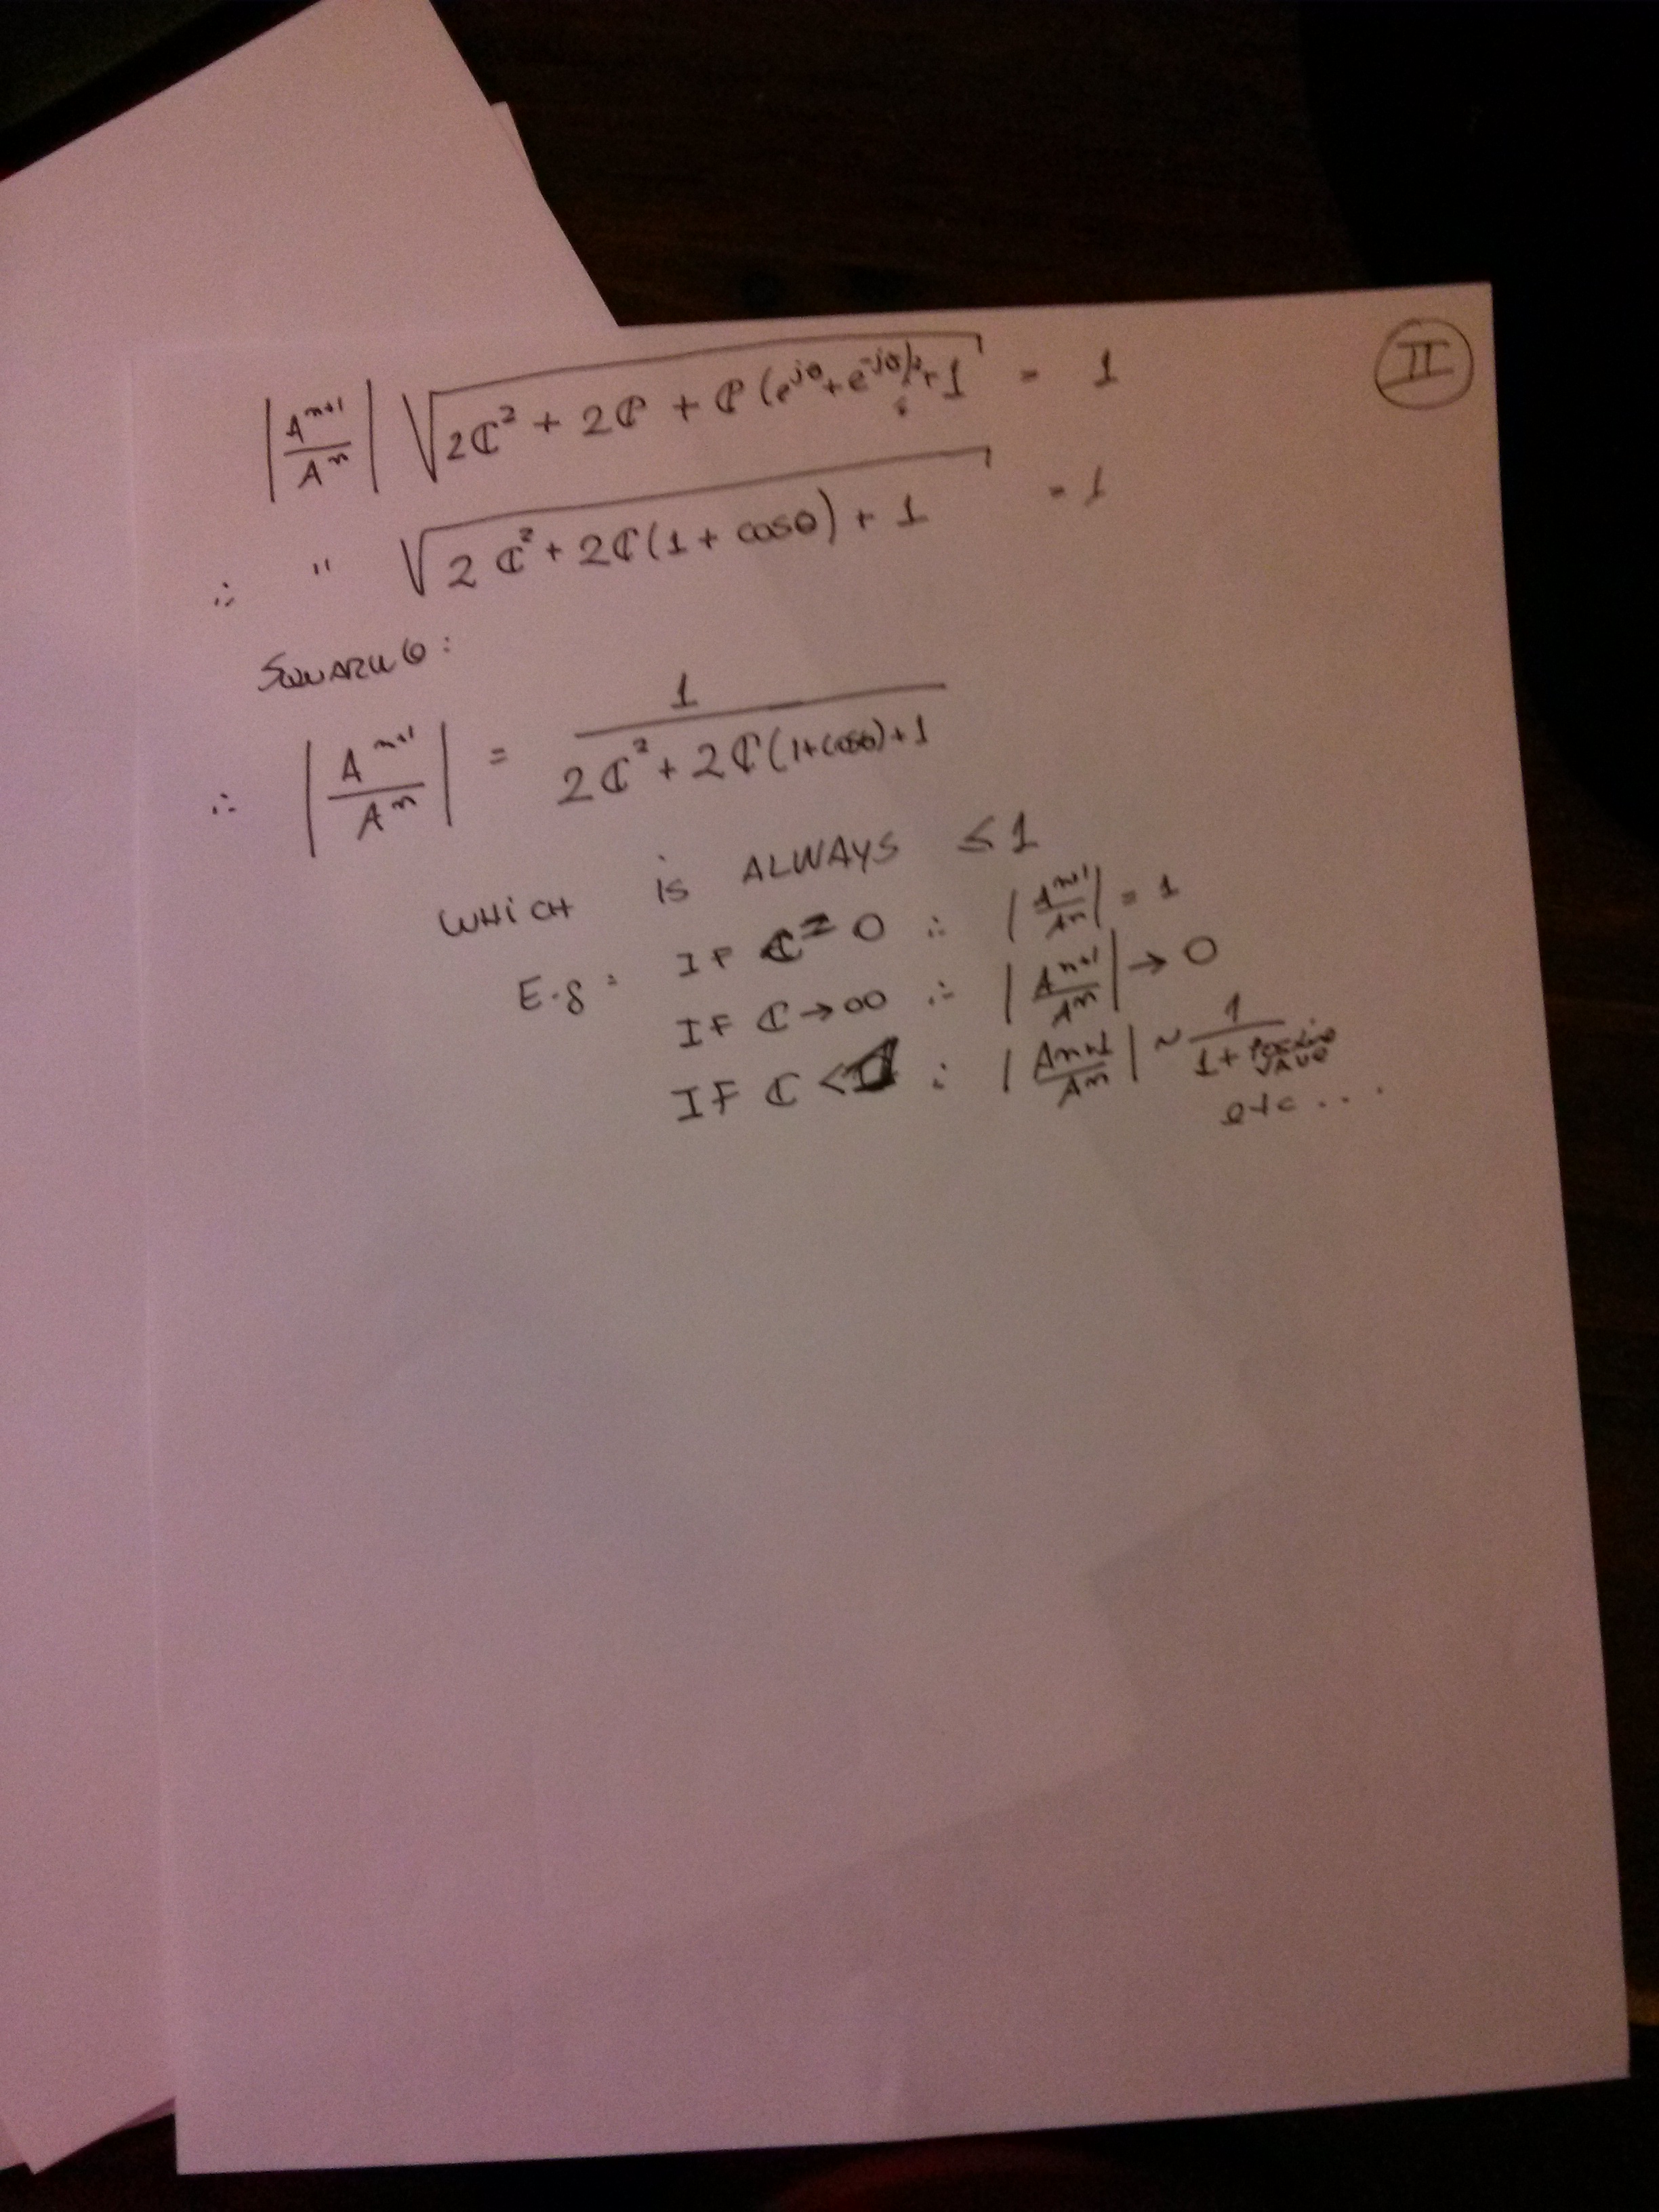 II
|A^{n+1}/A^n| √(2ℂ² + 2ℂ + ℂ(e^{jθ} + e^{-jθ}) + 1) = 1
∴ " √(2ℂ² + 2ℂ(1 + cosθ) + 1) = 1
SQUARING:
∴ |A^{n+1}/A^n| = 1/(2ℂ² + 2ℂ(1+cosθ)+1)
WHICH is ALWAYS ≤ 1
E.g: IF ℂ = 0 ∴ |A^{n+1}/A^n| = 1
IF ℂ → ∞ ∴ |A^{n+1}/A^n| → 0
IF ℂ < ∴ |A^{n+1}/A^n| ~ 1/(1+ POSITIVE VALUE)
etc...